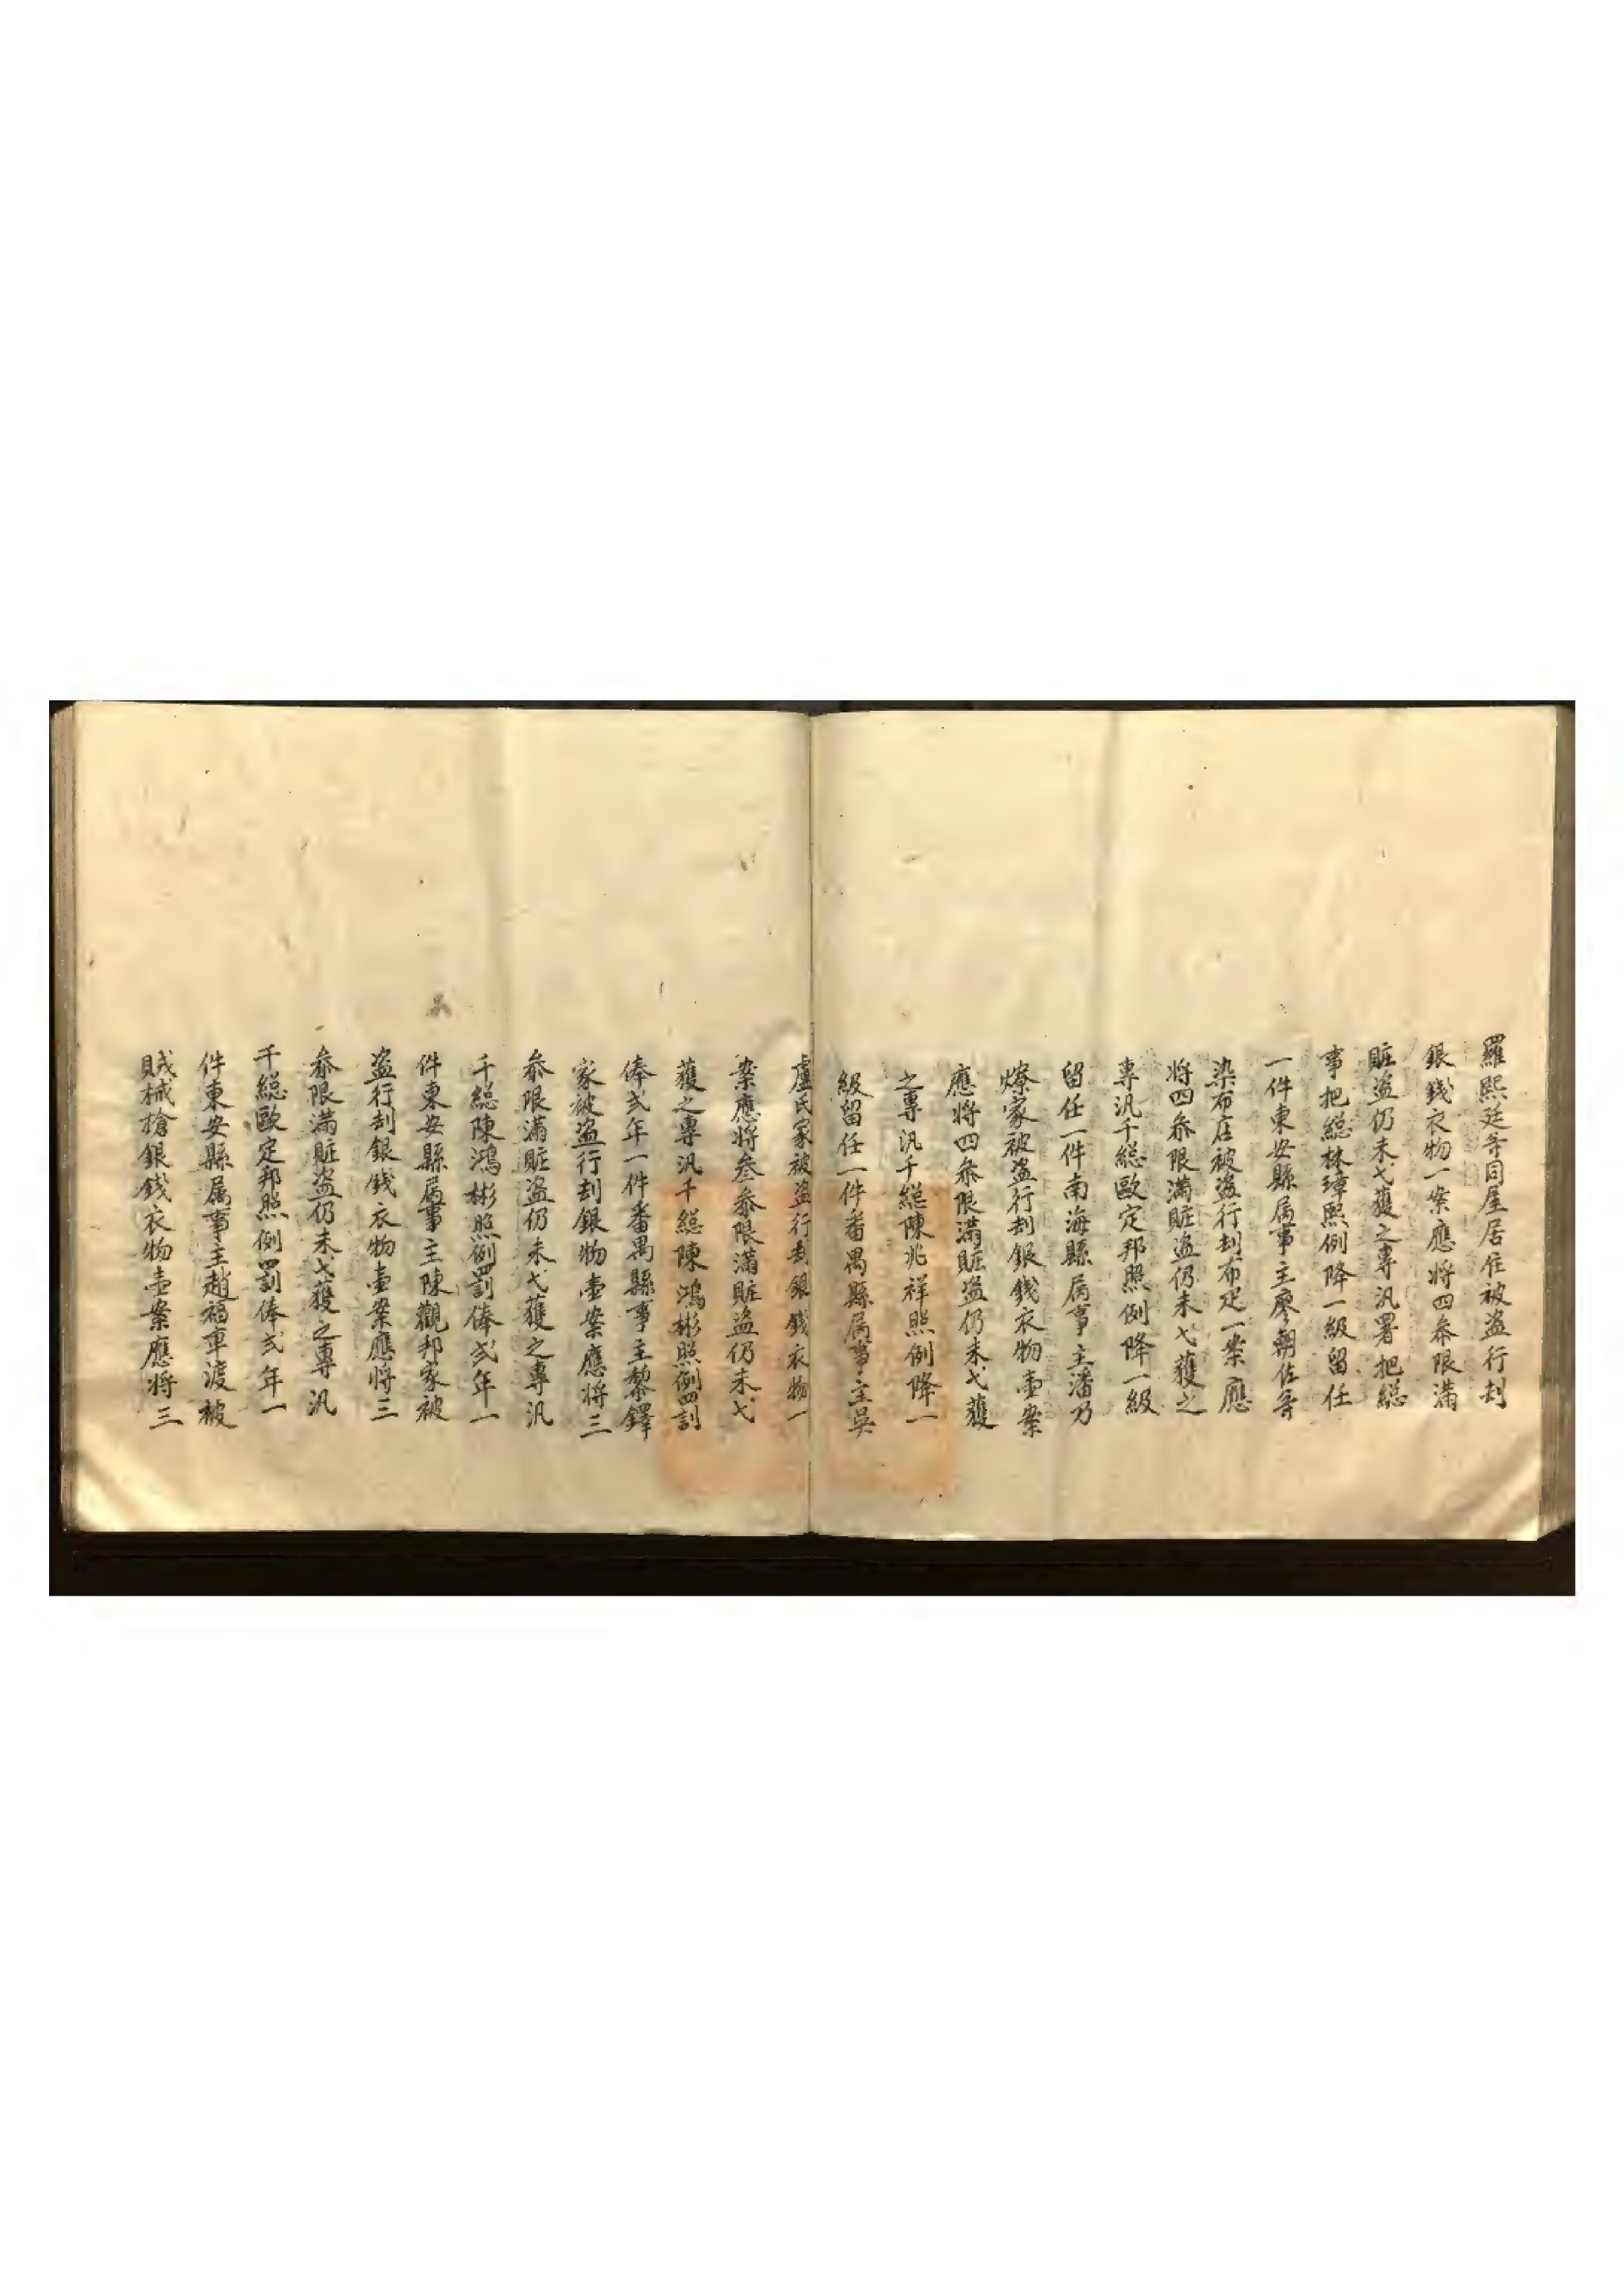 羅熙廷等同屋居住被盗行刦
銀錢衣物一案應将四叅限滿
賍盗仍未弋獲之專汛署把総
事把総林璋熙例降一級留任
一件東安縣属事主廖朝佐等
染布店被盗行刦布疋一案應
将四叅限滿賍盗仍未弋獲之
專汛千総歐定邦照例降一級
留任一件南海縣属事主潘乃
燎家被盗行刦銀錢衣物壷案
應将四叅限滿賍盗仍未弋獲
之專汛千総陳兆祥照例降一
級留任一件番禺縣属事主吳
盧氏家被盗行刦銀錢衣物一
案應將叁叅限滿賍盗仍未弋
獲之專汛千総陳鴻彬照例罰
俸弍年一件番禺縣事主黎鐸
家被盗行刦銀物壷案應将三
叅限滿賍盗仍未弋獲之專汛
千総陳鴻彬照例罰俸弍年一
件東安縣属事主陳觀邦家被
盗行刦銀錢衣物壷案應将三
叅限滿賍盗仍未弋獲之專汛
千総歐定邦照例罰俸弍年一
件東安縣属事主趙福車渡被
賊械搶銀錢衣物壷案應将三